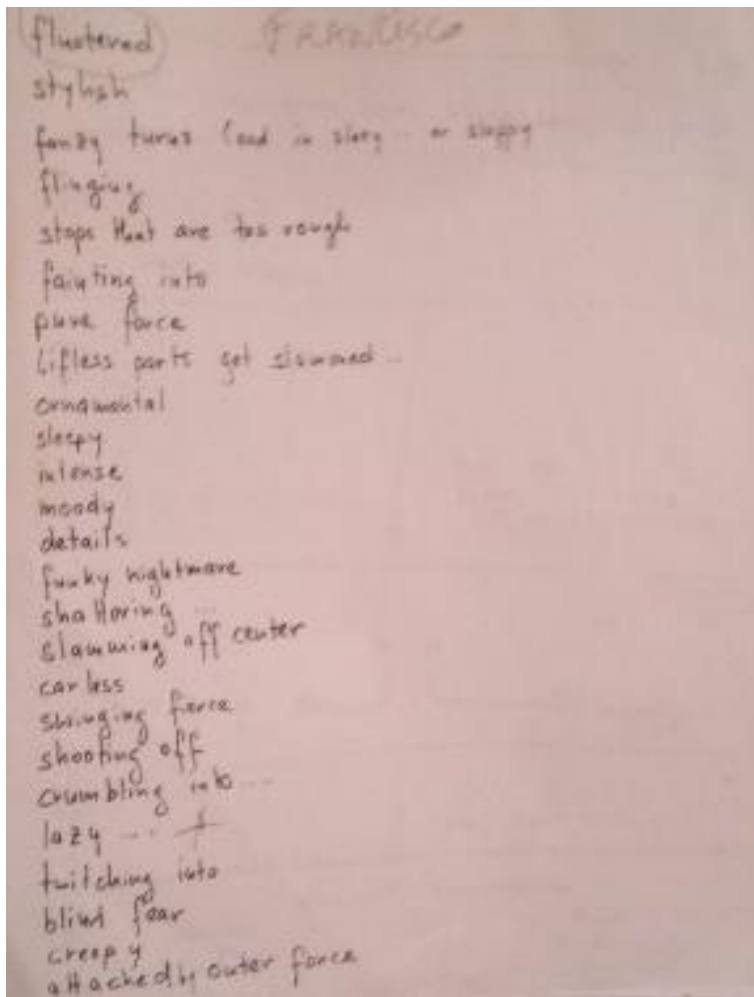 flustered FRANCISCO
stylish
fanzy turns lead in sleep.. or sloppy
flinging
stops that are too rough
fainting into
pure force
Lifless parts get slammed..
ornamental
sleepy
intense
moody
details
funky nightmare
shattering ...
slamming off center
carless
swinging force
shooting off
crumbling into...
lazy ...
twitching into
blind fear
creepy
attached by outer force